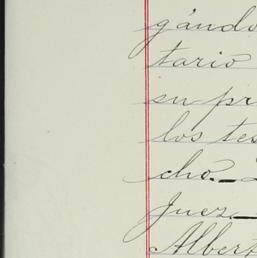 gándo
tario
su pr
los tes
cho._
Juez._
Albert